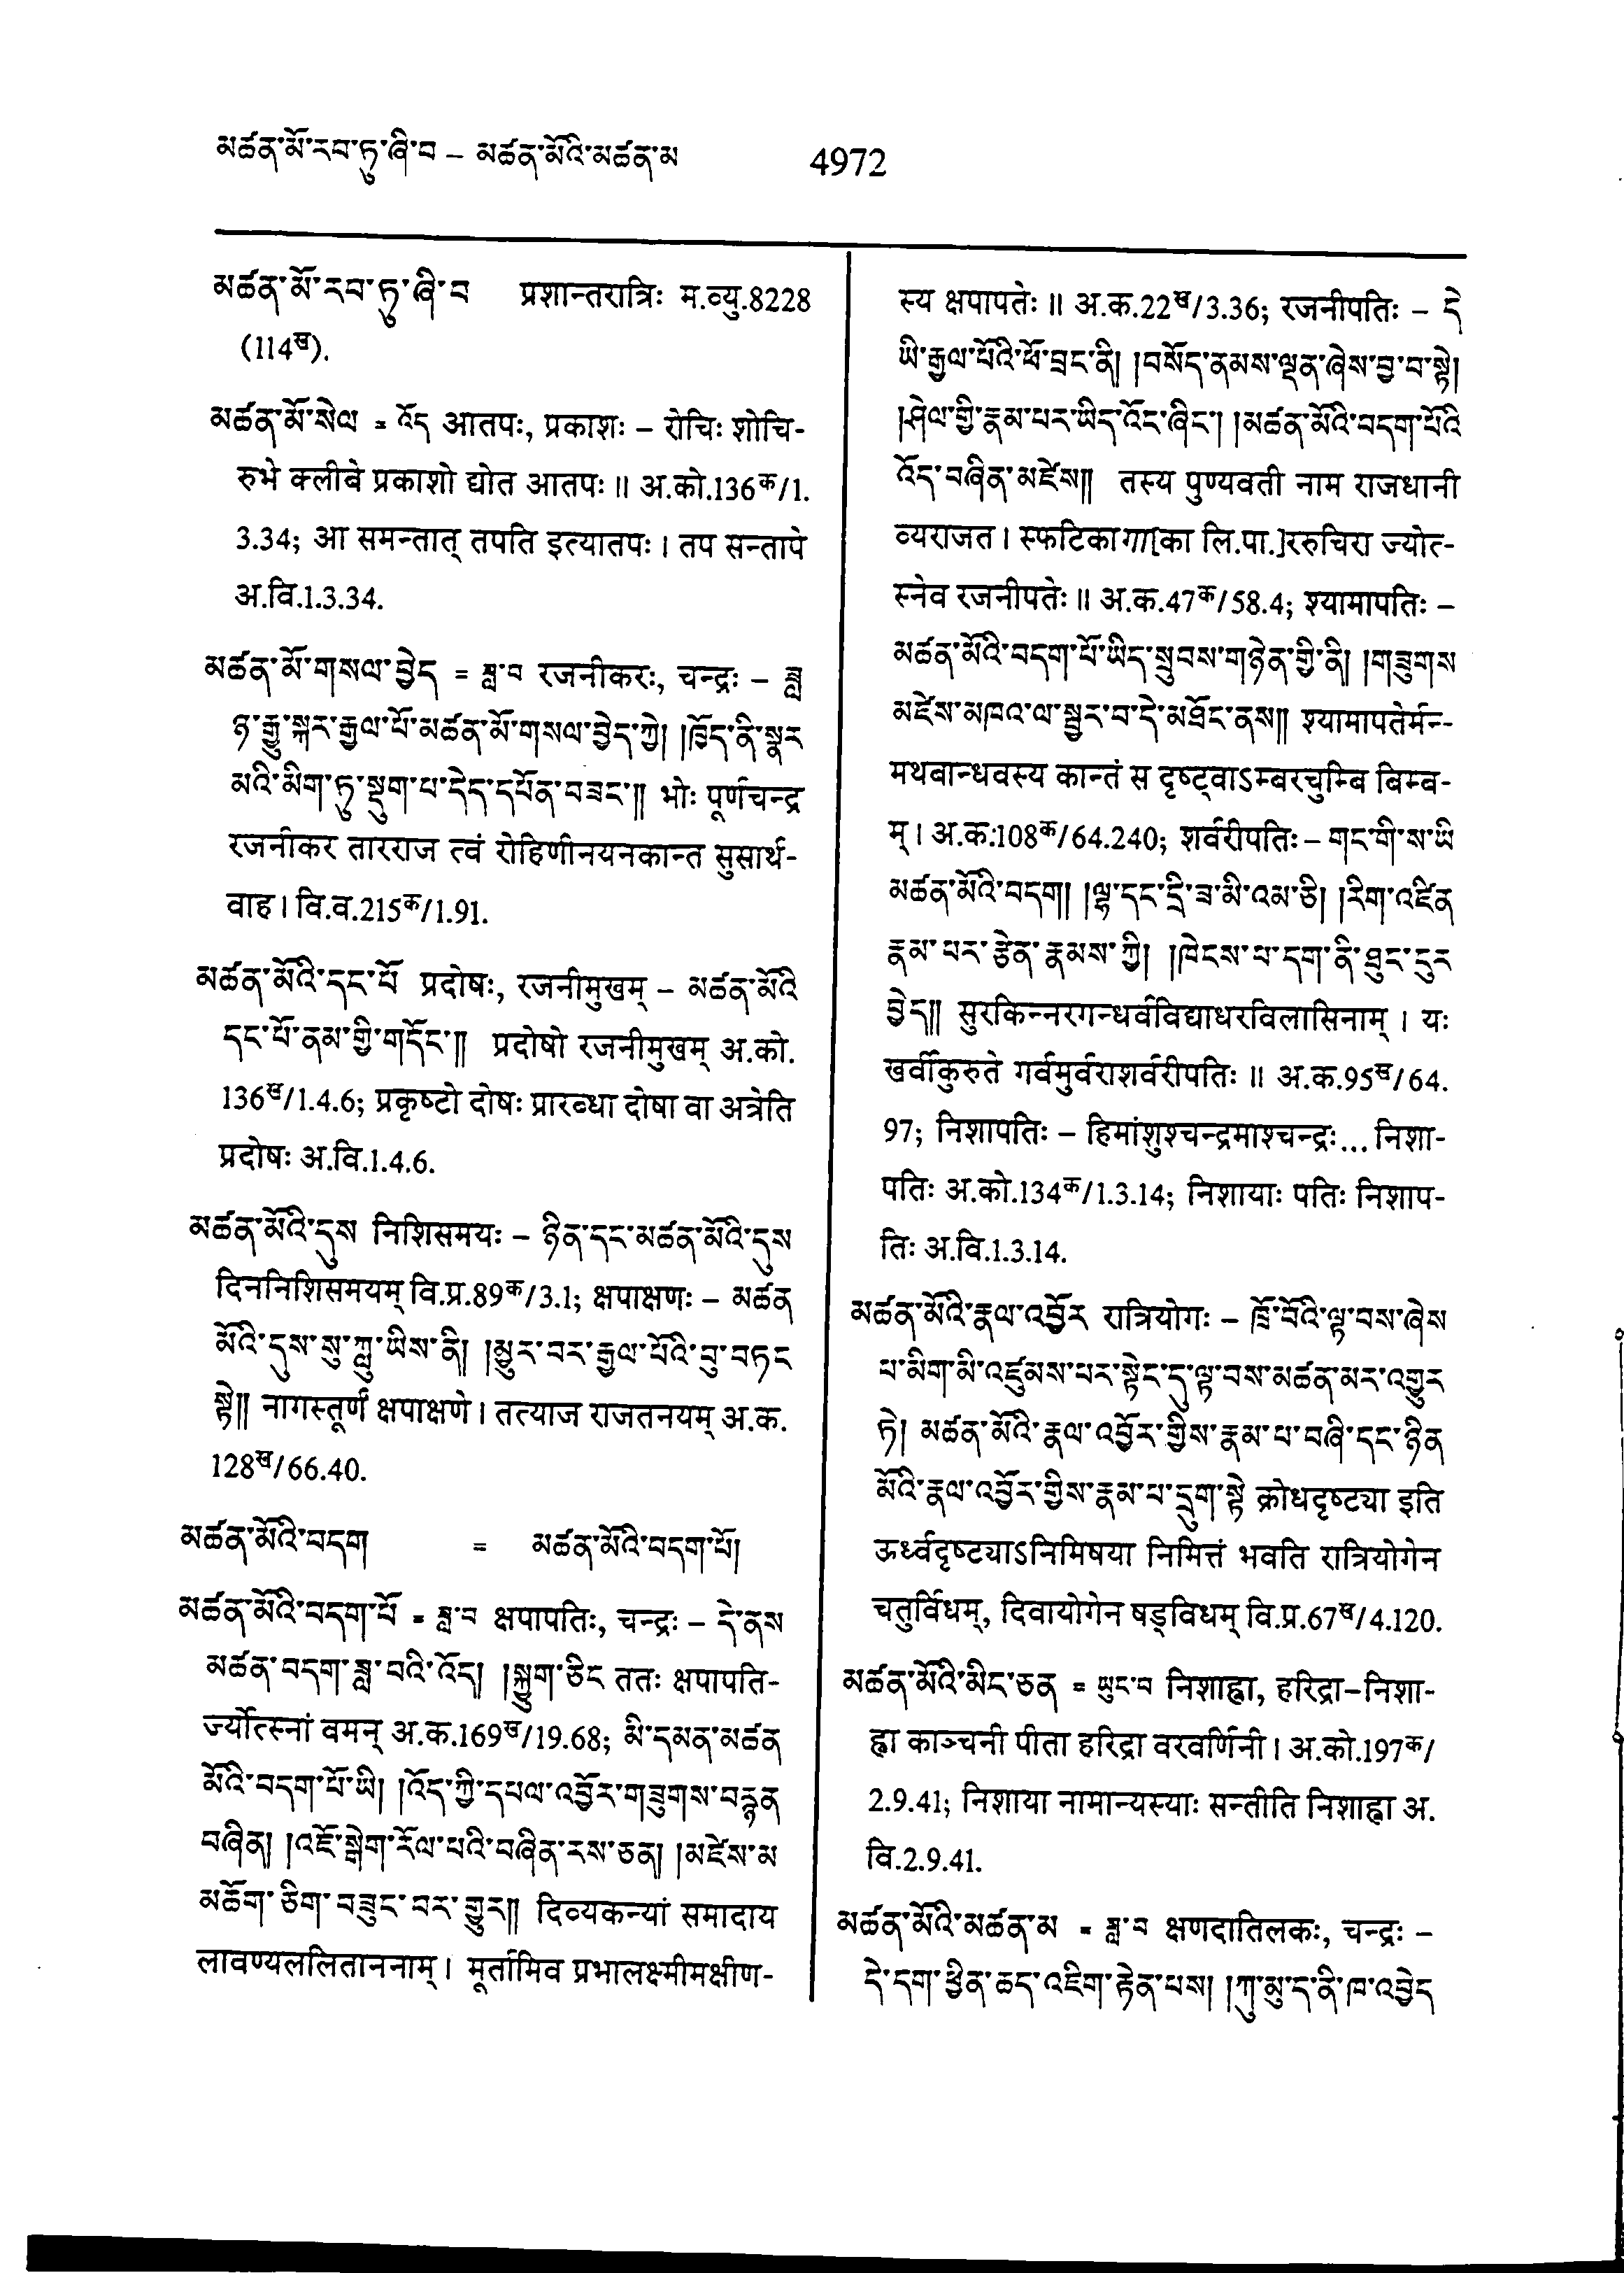 མཚན་མོ་རབ་ཏུ་ཞི་བ – མཚན་མོའི་མཚན་མ 4972
མཚན་མོ་རབ་ཏུ་ཞི་བ प्रशान्तरात्रिः म.व्यु.8228
(114ख).
མཚན་མོ་སེལ = འོད आतपः, प्रकाशः – रोचिः शोचि-
रुभे क्लीबे प्रकाशो द्योत आतपः ॥ अ.को.136क/1.
3.34; आ समन्तात् तपति इत्यातपः । तप सन्तापे
अ.वि.1.3.34.
མཚན་མོ་གསལ་བྱེད = ཟླ་བ रजनीकरः, चन्द्रः – ཟླ
ཉ་རྒྱུ་སྐར་རྒྱལ་པོ་མཚན་མོ་གསལ་བྱེད་ཀྱེ། །ཁྱོད་ནི་སྣར
མའི་མིག་ཏུ་སྡུག་པ་དེད་དཔོན་བཟང་།། भोः पूर्णचन्द्र
रजनीकर तारराज त्वं रोहिणीनयनकान्त सुसार्थ-
वाह । वि.व.215क/1.91.
མཚན་མོའི་དང་པོ प्रदोषः, रजनीमुखम् – མཚན་མོའི
དང་པོ་ནམ་གྱི་གདོང་།། प्रदोषो रजनीमुखम् अ.को.
136ख/1.4.6; प्रकृष्टो दोषः प्रारब्धा दोषा वा अत्रेति
प्रदोषः अ.वि.1.4.6.
མཚན་མོའི་དུས निशिसमयः – ཉིན་དང་མཚན་མོའི་དུས
दिननिशिसमयम् वि.प्र.89क/3.1; क्षपाक्षणः – མཚན
མོའི་དུས་སུ་ཀླུ་ཡིས་ནི། །མྱུར་བར་རྒྱལ་པོའི་བུ་བཏང
སྟེ།། नागस्तूर्णं क्षपाक्षणे । तत्याज राजतनयम् अ.क.
128ख/66.40.
མཚན་མོའི་བདག = མཚན་མོའི་བདག་པོ།
མཚན་མོའི་བདག་པོ = ཟླ་བ क्षपापतिः, चन्द्रः – དེ་ནས
མཚན་བདག་ཟླ་བའི་འོད། །སྐྱུག་ཅིང ततः क्षपापति-
र्ज्योत्स्नां वमन् अ.क.169ख/19.68; མི་དམན་མཚན
མོའི་བདག་པོ་ཡི། །འོད་ཀྱི་དཔལ་འབྱོར་གཟུགས་བརྙན
བཞིན། །འཇོ་སྒེག་རོལ་པའི་བཞིན་རས་ཅན། །མཛེས་མ
མཆོག་ཅིག་བཟུང་བར་གྱུར།། दिव्यकन्यां समादाय
लावण्यललिताननाम् । मूर्तामिव प्रभालक्ष्मीमक्षीण-
स्य क्षपापतेः ॥ अ.क.22ख/3.36; रजनीपतिः – དེ
ཡི་རྒྱལ་པོའི་ཕོ་བྲང་ནི། །བསོད་ནམས་ལྡན་ཞེས་བྱ་བ་སྟེ།
།ཤེལ་གྱི་རྣམ་པར་ཡིད་འོང་ཞིང་། །མཚན་མོའི་བདག་པོའི
འོད་བཞིན་མཛེས།། तस्य पुण्यवती नाम राजधानी
व्यराजत । स्फटिकागा[का लि.पा.]ररुचिरा ज्योत-
स्नेव रजनीपतेः ॥ अ.क.47क/58.4; श्यामापतिः –
མཚན་མོའི་བདག་པོ་ཡིད་སྲུབས་གཉེན་གྱི་ནི། །གཟུགས
མཛེས་མཁའ་ལ་སྦྱར་བ་དེ་མཐོང་ནས།། श्यामापतेर्मन-
मथबान्धवस्य कान्तं स दृष्ट्वाऽम्बरचुम्बि बिम्ब-
म् । अ.क.108क/64.240; शर्वरीपतिः – གང་གི་ས་ཡི
མཚན་མོའི་བདག། །ལྷ་དང་དྲི་ཟ་མི་འམ་ཅི། །རིག་འཛིན
རྣམ་པར་རྩེན་རྣམས་ཀྱི། །ཁེངས་པ་དག་ནི་ཐུང་དུར
བྱེད།། सुरकिन्नरगन्धर्वविद्याधरविलासिनाम् । यः
खर्वीकुरुते गर्वमुर्वराशर्वरीपतिः ॥ अ.क.95ख/64.
97; निशापतिः – हिमांशुश्चन्द्रमाश्चन्द्रः... निशा-
पतिः अ.को.134क/1.3.14; निशायाः पतिः निशाप-
तिः अ.वि.1.3.14.
མཚན་མོའི་རྣལ་འབྱོར रात्रियोगः – ཁྲོ་བོའི་ལྟ་བས་ཞེས
པ་མིག་མི་འཛུམས་པར་སྟེང་དུ་ལྟ་བས་མཚན་མར་འགྱུར
ཏེ། མཚན་མོའི་རྣལ་འབྱོར་གྱིས་རྣམ་པ་བཞི་དང་ཉིན
མོའི་རྣལ་འབྱོར་གྱིས་རྣམ་པ་དྲུག་སྟེ क्रोधदृष्ट्या इति
ऊर्ध्वदृष्ट्याऽनिमिषया निमित्तं भवति रात्रियोगेन
चतुर्विधम्, दिवायोगेन षड्विधम् वि.प्र.67ख/4.120.
མཚན་མོའི་མིང་ཅན = ཡུང་བ निशाह्वा, हरिद्रा–निशा-
ह्वा काञ्चनी पीता हरिद्रा वरवर्णिनी । अ.को.197क/
2.9.41; निशाया नामान्यस्याः सन्तीति निशाह्वा अ.
वि.2.9.41.
མཚན་མོའི་མཚན་མ = ཟླ་བ क्षणदातिलकः, चन्द्रः –
དེ་དག་ཕྱིན་ཆད་འཇིག་རྟེན་པས། །ཀུ་མུ་ད་ནི་ཁ་འབྱེད